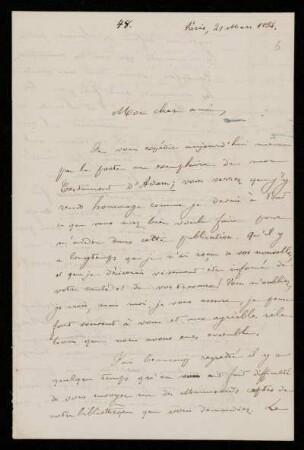 48.
Paris, 21 Mars 1854.
6
Mon cher ami,
Je vous expédie aujourd'hui même
par la poste un exemplaire de mon
Testament d'Adam; vous verrez que j'y
rends hommage comme je devais à tout
ce que vous avez bien voulu faire pour
m'aider dans cette publication. Qu'il y
a longtemps que je n'ai reçu de vos nouvelles,
et que je désirerais vivement être informé de
votre santé et de vos travaux! Vous m'oubliez,
je crois; mais moi, je vous assure, je pense
fort souvent à vous et aux agréables rela-
tions que nous avons eues ensemble.
J'ai beaucoup regretté il y a
quelque temps qu'on ait fait difficulté
de vous envoyer un des manuscrits coptes de
notre bibliothèque que vous demandiez. Le